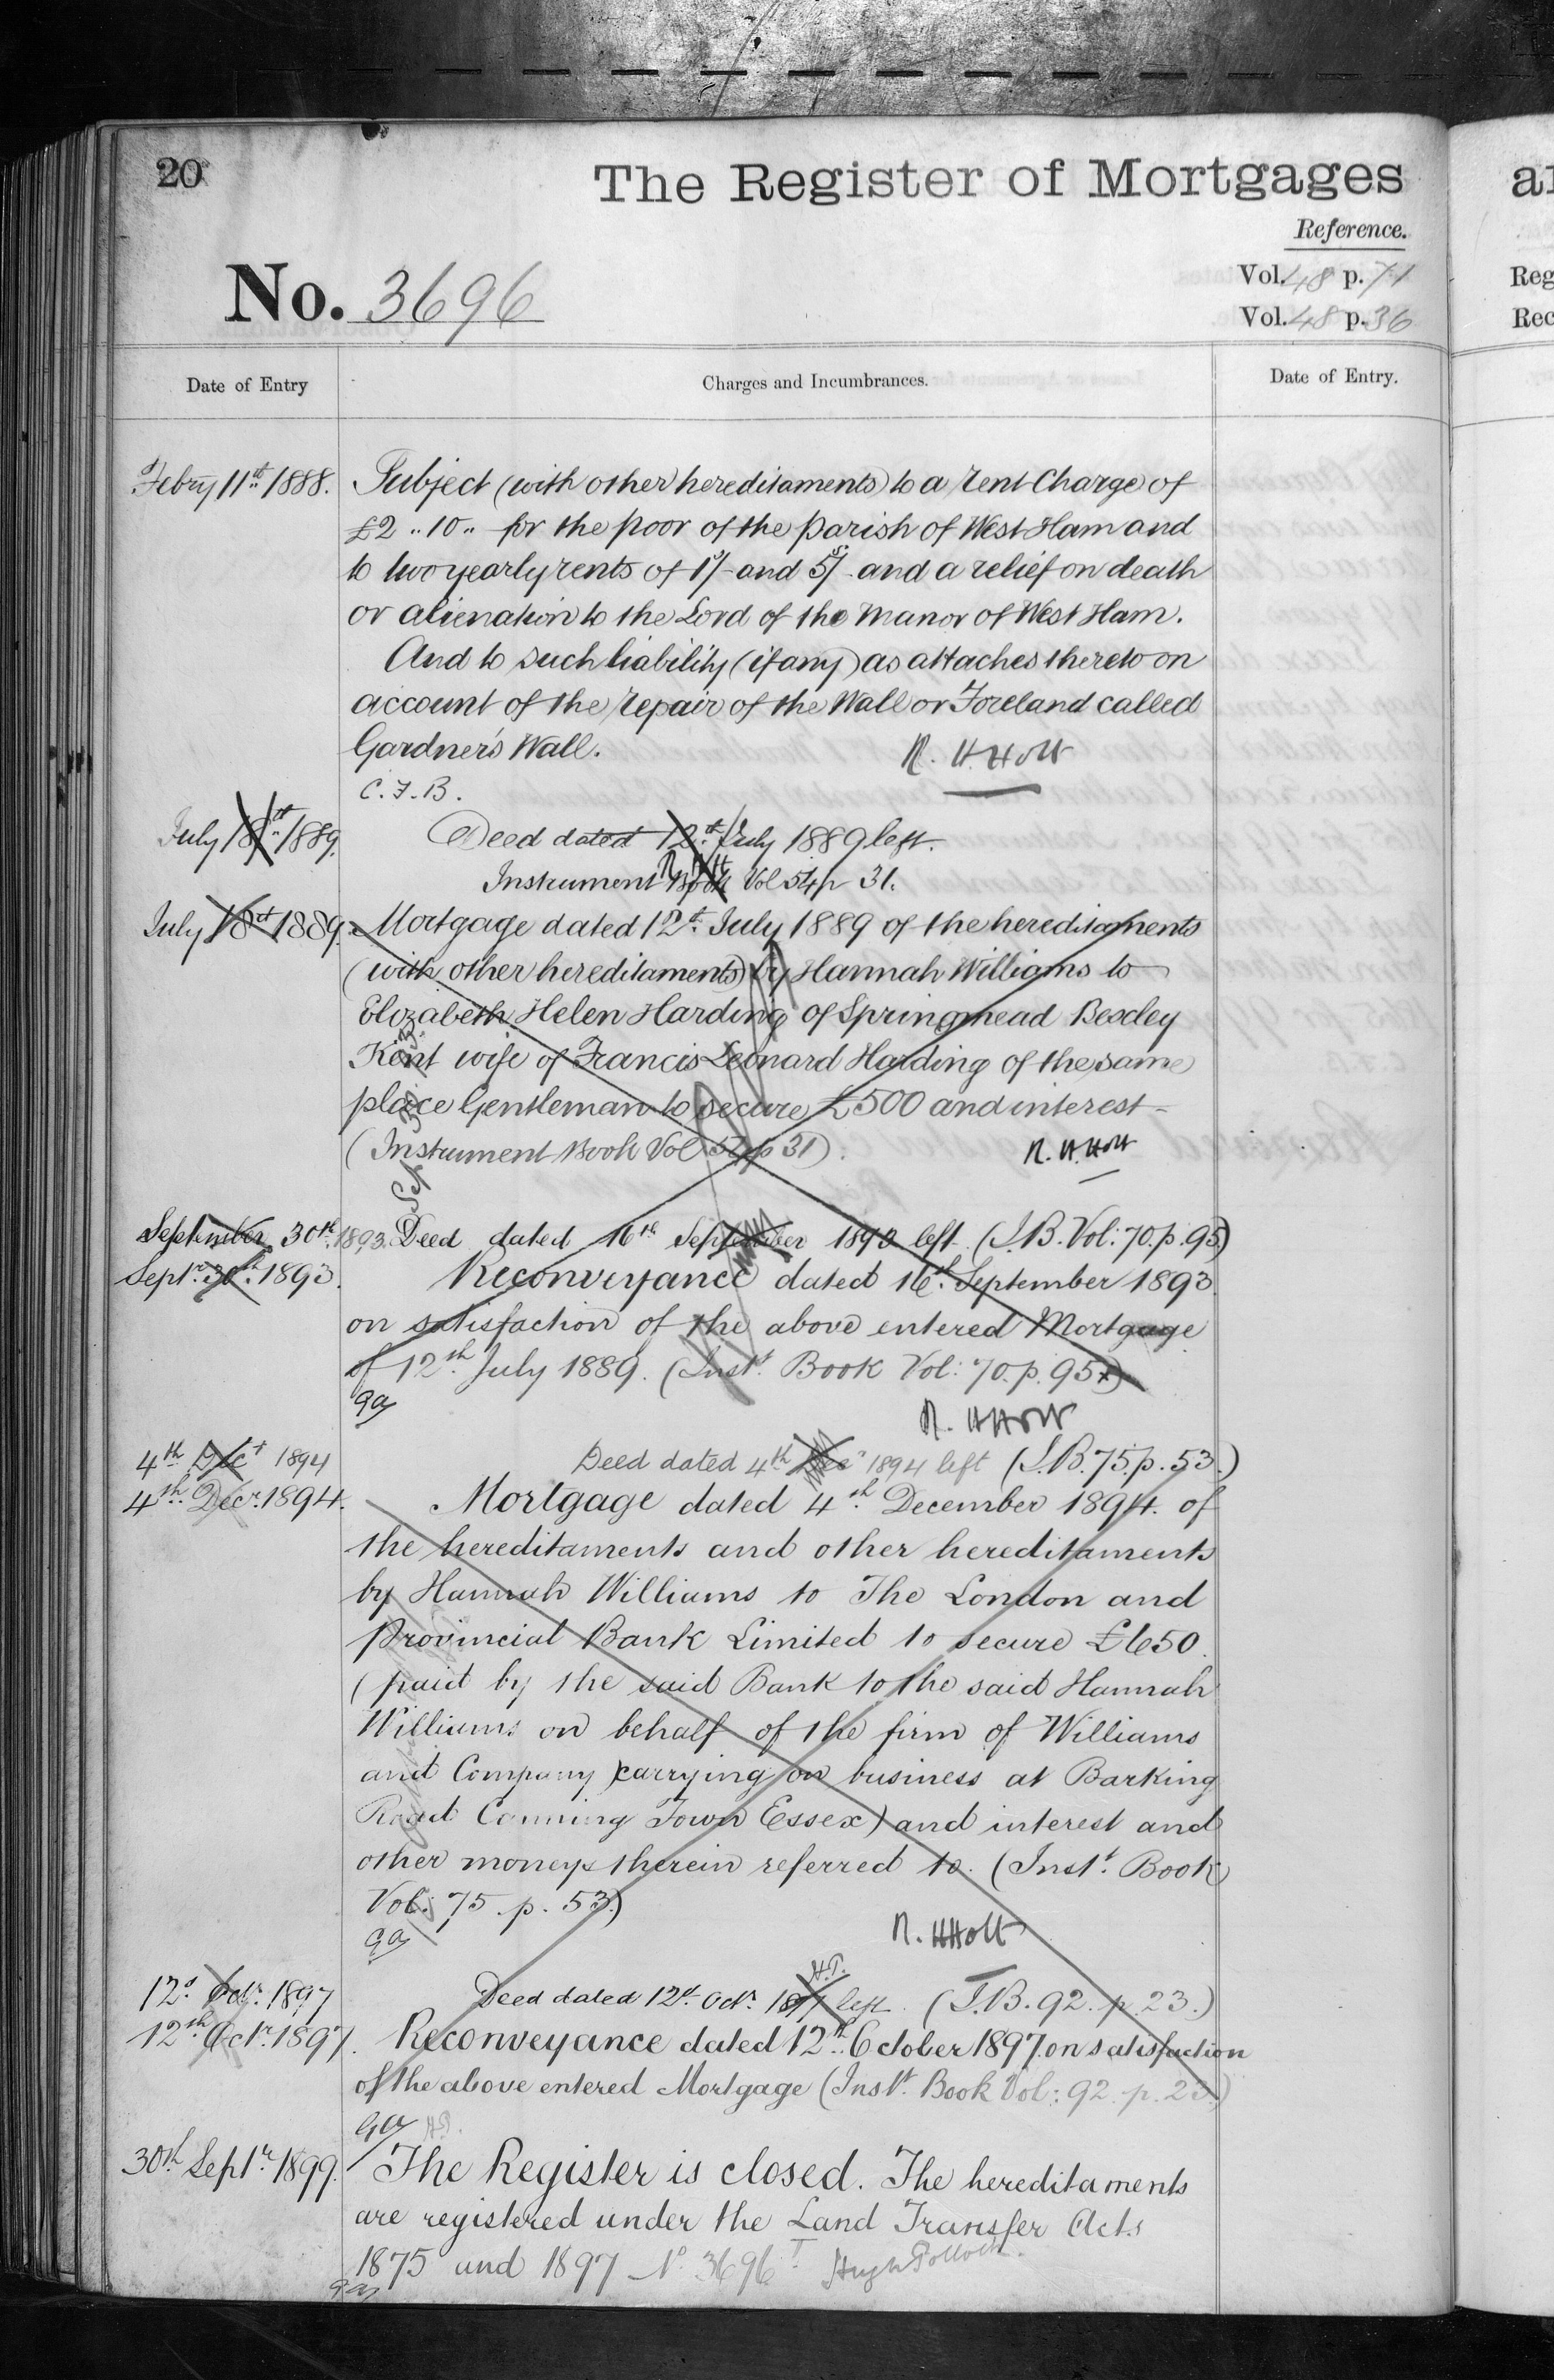 20
The Register of Mortgages
Reference.
No. 3696
Vol. 48 p. 71
Vol. 48 p. 36
Date of Entry
Charges and Incumbrances.
Date of Entry.
Febry 11th 1888. Subject (with other hereditaments) to a rent Charge of
£2 .. 10 .. for the poor of the parish of West Ham and
to two yearly rents of 1s/- and 5s/- and a relief on death
or alienation to the Lord of the Manor of West Ham.
And to such liability (if any) as attaches thereto on
account of the repair of the Wall or Foreland called
Gardner's Wall.
R. H. Holt
C. F. B.
July 18th 1889. Deed dated 12th July 1889 left.
Instrument Book Vol 54 p 31.
July 18th 1889. Mortgage dated 12th July 1889 of the hereditaments
(with other hereditaments) by Hannah Williams to
Elizabeth Helen Harding of Springmead Bexley
Kent wife of Francis Leonard Harding of the same
place Gentleman to secure £500 and interest -
(Instrument Book Vol 54 p 31).
R. H. Holt
September 30th 1893. Deed dated 16th September 1893 left. (I.B. Vol: 70. p. 95)
Septr. 30th. 1893. Reconveyance dated 16th. September 1893.
on satisfaction of the above entered Mortgage
of 12th July 1889. (Inst. Book Vol: 70. p. 95.)
R. H. Holt
4th Dec 1894 Deed dated 4th Dec 1894 left (I.B. 75. p. 53.)
4th. Decr. 1894. Mortgage dated 4th. December 1894. of
the hereditaments and other hereditaments
by Hannah Williams to The London and
Provincial Bank Limited to secure £650.
(paid by the said Bank to the said Hannah
Williams on behalf of the firm of Williams
and Company carrying on business at Barking
Road Canning Town Essex) and interest and
other moneys therein referred to. (Inst. Book
Vol: 75. p. 53.)
R. H. Holt
H.P.
12th Octr. 1897 Deed dated 12th Octr. 1897 left. (I.B. 92. p. 23.)
12th Octr. 1897. Reconveyance dated 12th. October 1897. on satisfaction
of the above entered Mortgage (Inst. Book Vol: 92. p. 23.)
H.P.
30th Septr. 1899. The Register is closed. The hereditaments
are registered under the Land Transfer Acts
1875 and 1897 No. 3696 Hugh Pollock.
Reg
Rec